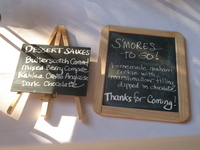 DESSERT SAUCES
Butterscotch Caramel
Mixed Berry Compote
Kahlua Creme Anglaise
Dark Chocolate
S'MORES
TO GO!
homemade graham
cookie with
marshmallow filling
dipped in chocolate
Thanks for Coming!